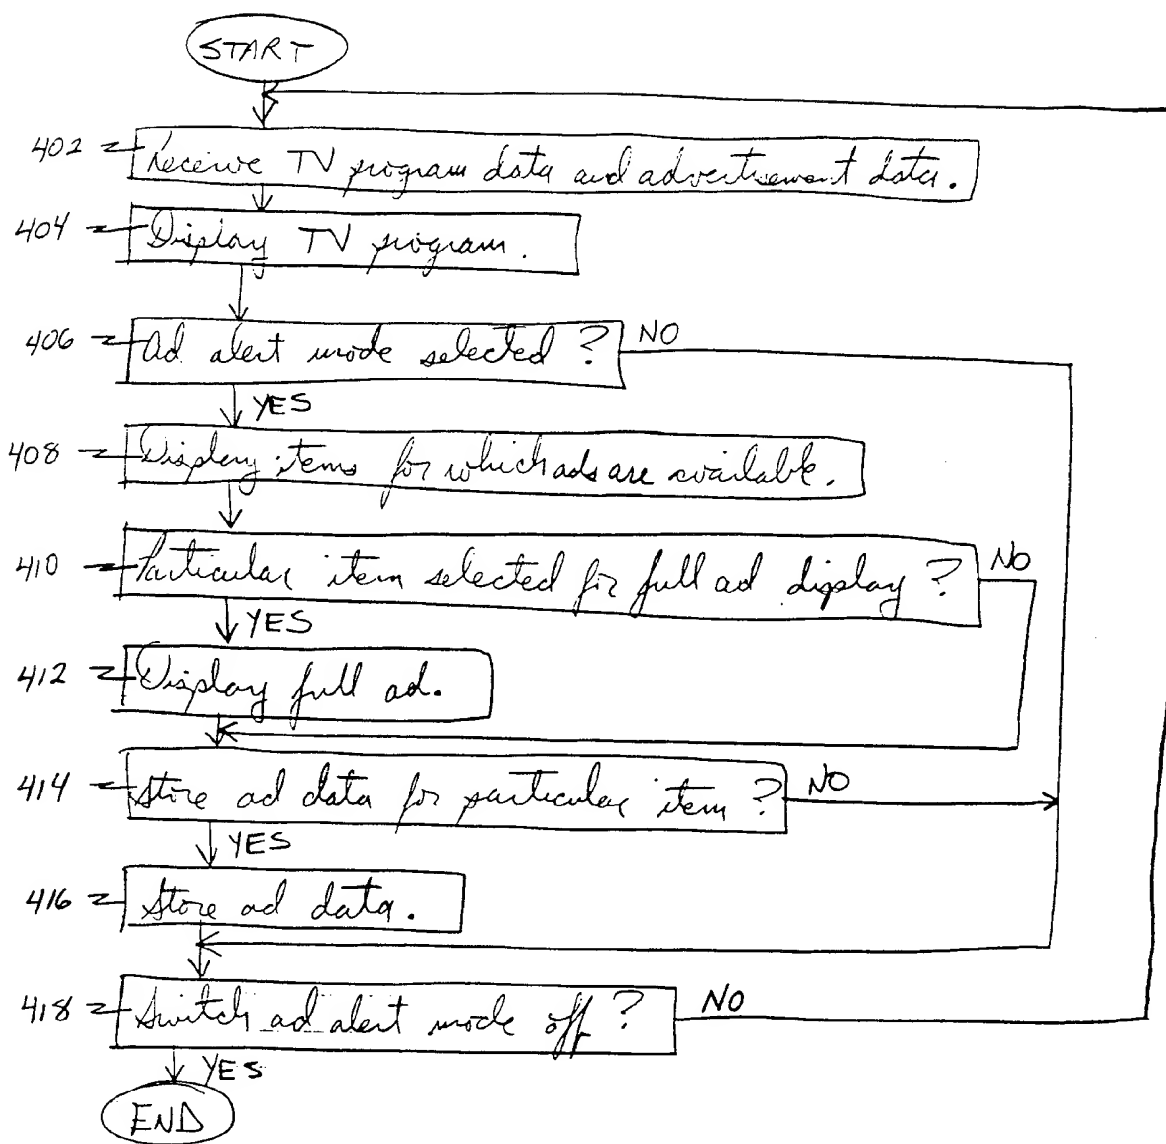 START
402 Receive TV program data and advertisement data.
404 Display TV program.
406 Ad alert mode selected? NO
YES
408 Display items for which ads are available.
410 Particular item selected for full ad display? NO
YES
412 Display full ad.
414 Store ad data for particular item? NO
YES
416 Store ad data.
418 Switch ad alert mode off? NO
YES
END